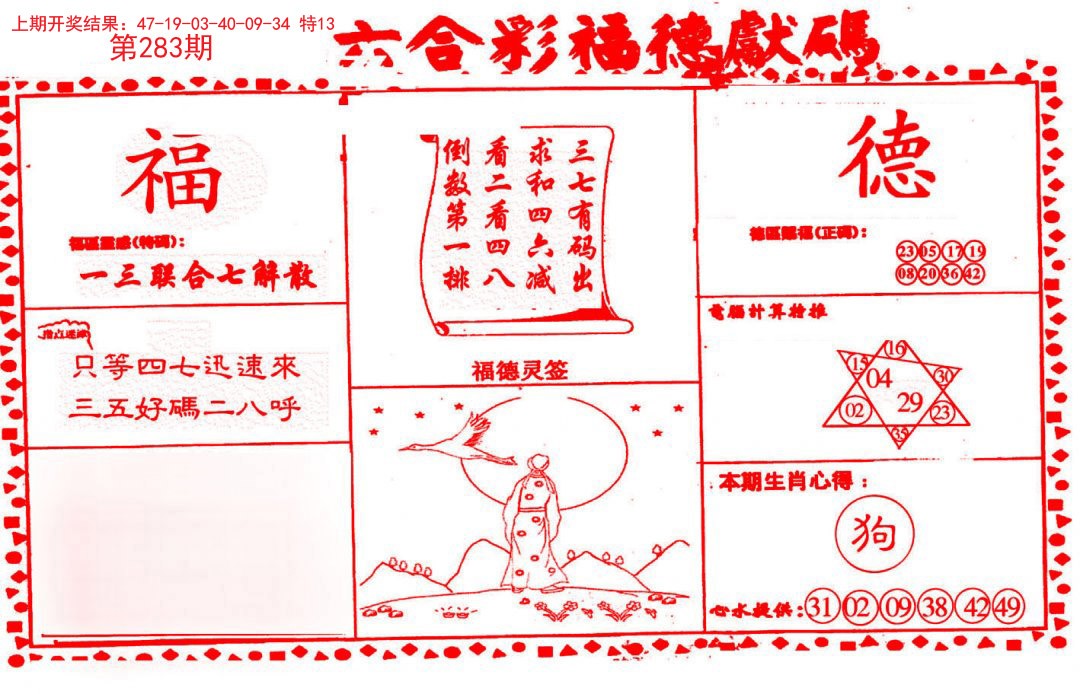 上期开奖结果: 47-19-03-40-09-34 特13
第283期
六合彩福德獻碼
福
福區靈感(特碼):
一三联合七解散
指点迷津
只等四七迅速來
三五好碼二八呼
三七有码出
求和四六减
看二看四八
倒数第一排
福德灵签
德
德區賜福(正碼):
23 05 17 19
08 20 36 42
電腦計算特推
16
15 04 30
02 29 23
35
本期生肖心得:
狗
心水提供: 31 02 09 38 42 49